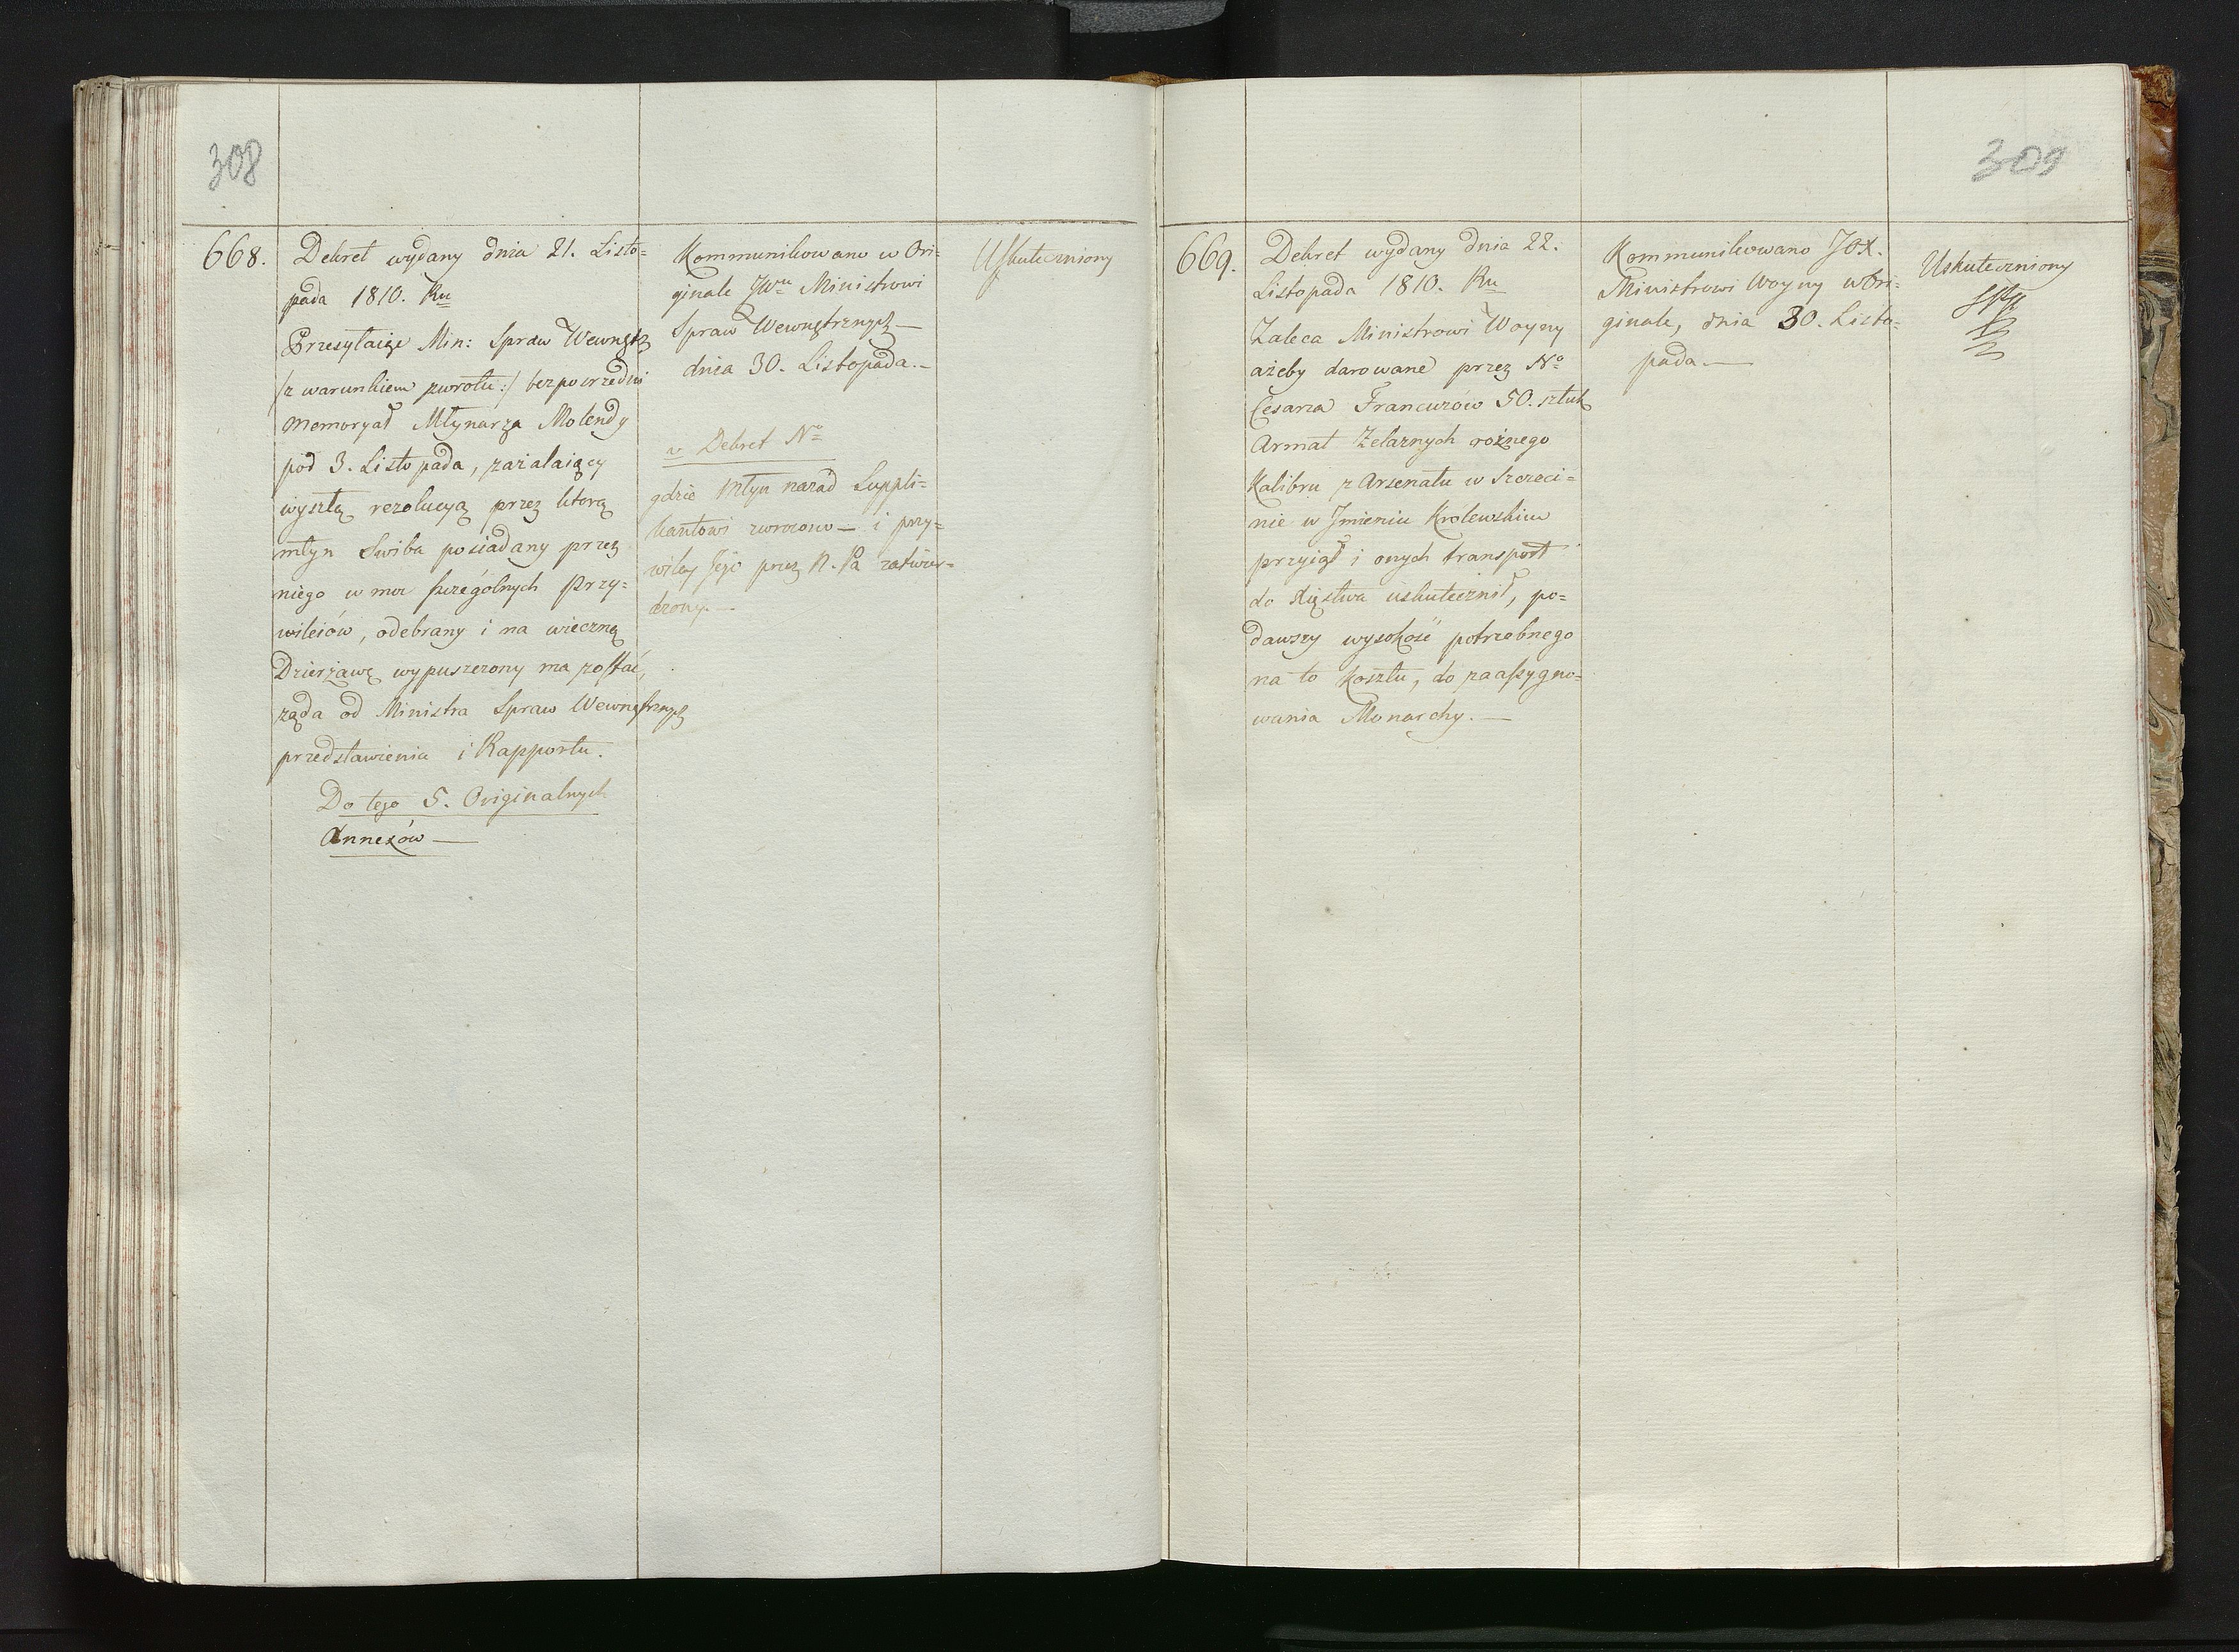 308
668.
Dekret wydany dnia 21. Listo=
pada 1810. Ru
Przesyłaiąc Min: Spraw Wewnętrz
/z warunkiem zwrotu:/ bezposrzedni
memoryał Młynarza Molendy
pod 3. Listopada, zażalaiący
wyszłą rezolucyą przez ktorą
młyn Swiba posiadany przez
niego w moc szczególnych Przy=
wileiów, odebrany i na wieczną
Dzierżawę wypuszczony ma zostać,
żąda od Ministra Spraw Wewnętrznych
przedstawienia i Rapportu.
Do tego 5. Originalnych
Annexów —
Kommunikowano w Ori=
ginale JWmu Ministrowi
Spraw Wewnętrznych —
dnia 30. Listopada. —
v. Dekret No
gdzie Młyn nazad Suppli=
kantowi zwrocono — i przy=
wiley Jego przez N. Pa zatwier=
dzony. —
Uskuteczniony
309
669.
Dekret wydany dnia 22.
Listopada 1810. Ru
Zaleca Ministrowi Woyny
ażeby darowane przez No
Cesarza Francuzow 50. sztuk
Armat Żelaznych rożnego
Kalibru z Arsenału w Szczeci=
nie w Jmieniu Krolewskim
przyiął i onych transport
do Xięstwa uskutecznił, po=
dawszy wysokość potrzebnego
na to kosztu, do zaassygno=
wania Monarchy. —
Kommunikowano JOX.
Ministrowi Woyny w Ori=
ginale, dnia 30. Listo=
pada —
Uskuteczniony